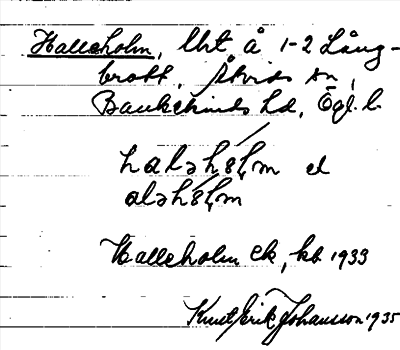 Halleholm, lht å 1-2 Lång-
brott, Åtvids sn,
Bankekinds hd, Ögl. l.
haləhɵlm el
aləhɵlm
Halleholm ek, kb 1933
Knut Erik Johansson 1935